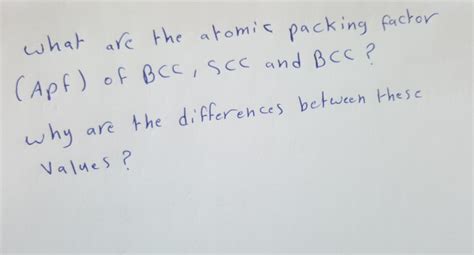 what are the atomic packing factor
(Apf) of BCC, SCC and BCC?
why are the differences between these
values?